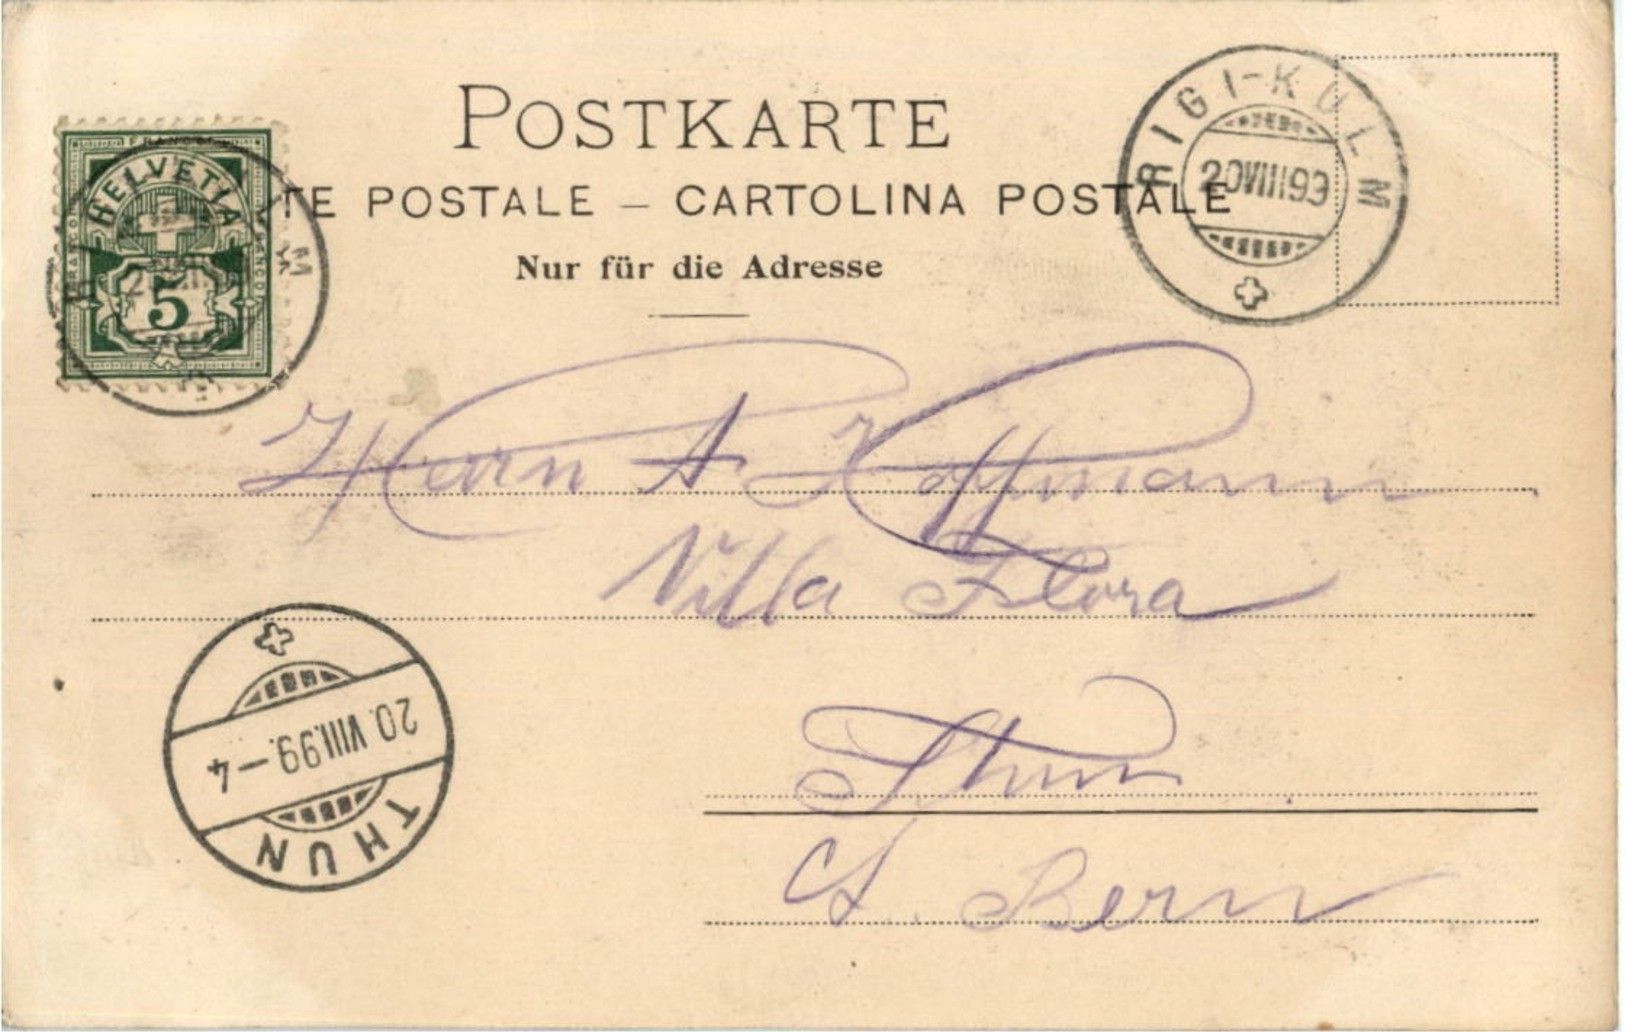 POSTKARTE
TE POSTALE – CARTOLINA POSTALE
Nur für die Adresse
RIGI-KULM
20VIII99
FRANCO
HELVETIA
FRANCO
FRANCO
5
Herrn A Hoffmann
Villa Flora
Thun
Ct. Bern
20.VIII.99.–4
THUN